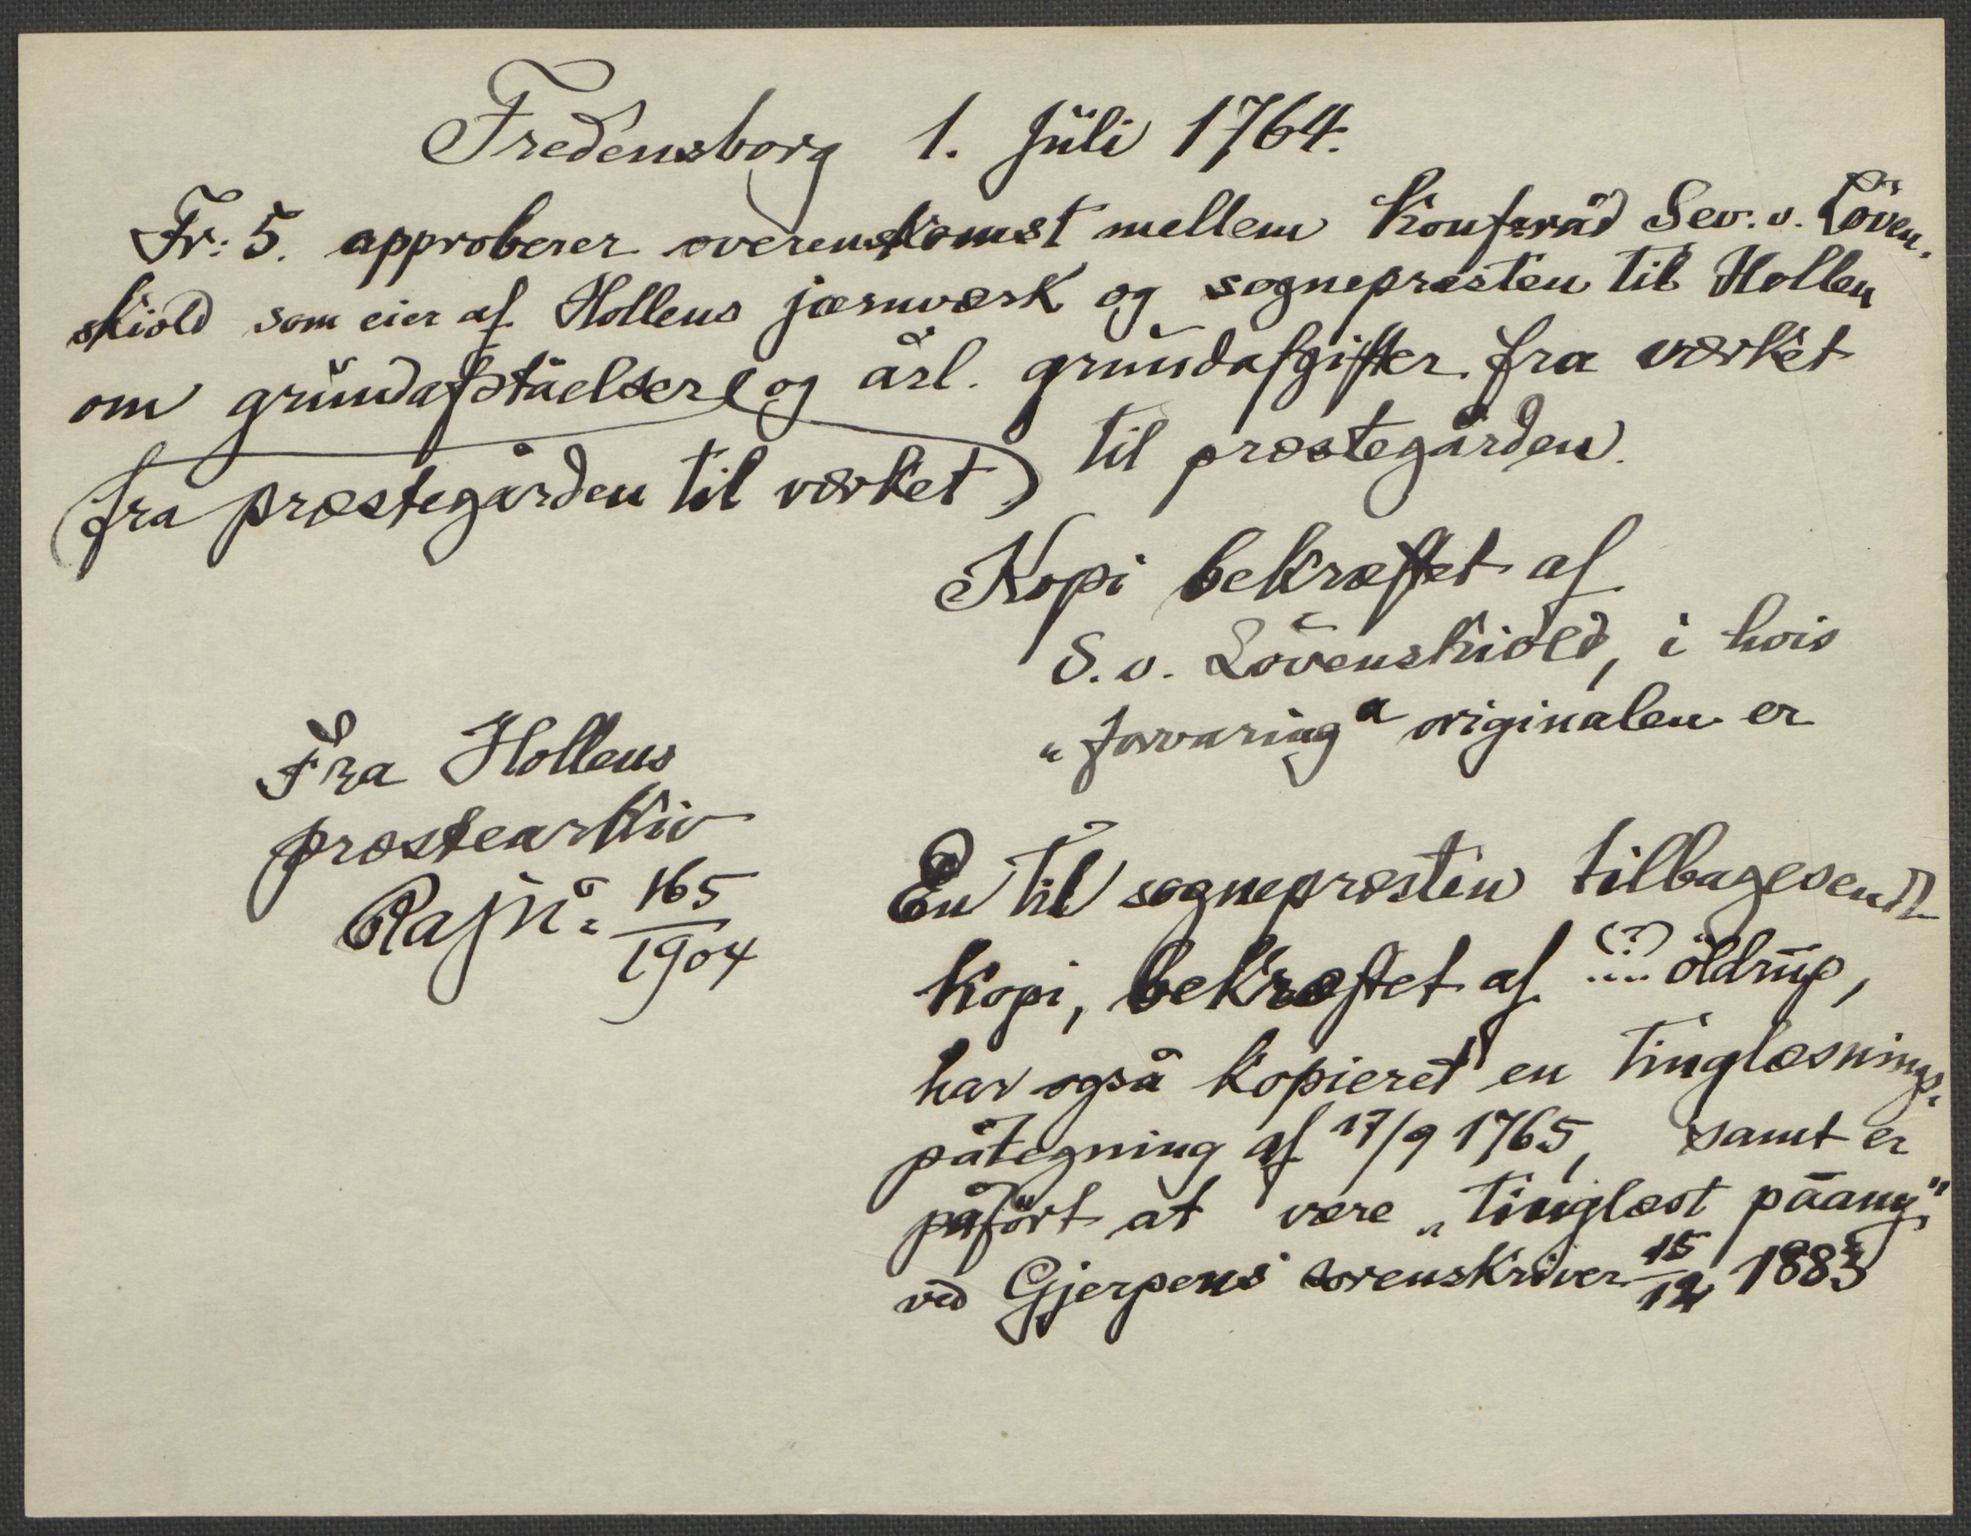 Fredensborg 1. Juli 1764.
Fr: 5. approberer overenskomst mellem Konfsråd Sev. v. Löven-
skiold som eier af Hollens jærnværk og sognepræsten til Hollen
om grundafståelser og årl. grundafgifter fra værket
(fra præstegården til værket) til præstegården.
Kopi bekræftet af
S. v. Lövenskiold, i hvis
"forvaring" originalen er
Fra Hollens
præstearkiv
Raj N° 165/1904
En til sognepræsten tilbagesendt
kopi, bekræftet af (?) .... öldrup,
har også kopieret en tinglæsnings-
påtegning af 17/9 1765, samt er
påfört at være "tinglæst påany"
ved Gjerpens sorenskriver 15/12 1883